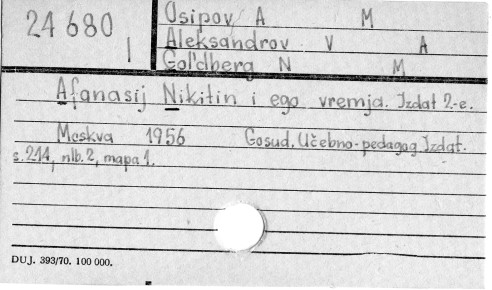 24 680
I
Osipov A M
Aleksandrov V A
Gol'dberg N M
Afanasij Nikitin i ego vremja. Izdat 2-e.
Moskva 1956 Gosud. Učebno-pedagog Izdat.
s. 214, nlb. 2, mapa 1.
DUJ. 393/70. 100 000.